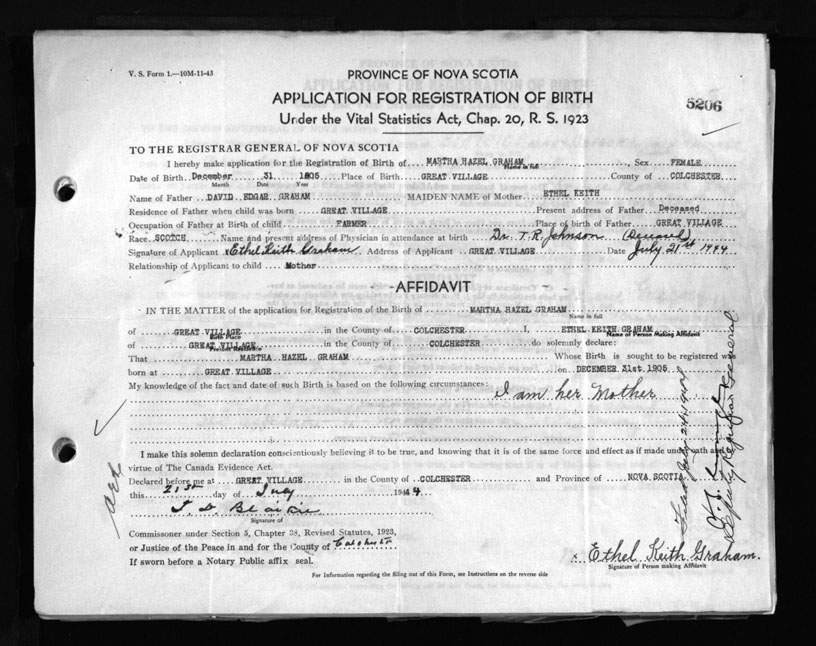 V. S. Form 1.—10M-11-43
PROVINCE OF NOVA SCOTIA
APPLICATION FOR REGISTRATION OF BIRTH
5206
Under the Vital Statistics Act, Chap. 20, R. S. 1923
TO THE REGISTRAR GENERAL OF NOVA SCOTIA
I hereby make application for the Registration of Birth of MARTHA HAZEL GRAHAM, Sex FEMALE
Name in full
Date of Birth December 31 1905 Place of Birth GREAT VILLAGE County of COLCHESTER
Month Date Year
Name of Father DAVID EDGAR GRAHAM MAIDEN NAME of Mother ETHEL KEITH
Residence of Father when child was born GREAT VILLAGE Present address of Father Deceased
Occupation of Father at Birth of child FARMER Place of birth of Father GREAT VILLAGE
Race SCOTCH Name and present address of Physician in attendance at birth Dr. T. R. Johnson (Deceased)
Signature of Applicant x Ethel Keith Graham Address of Applicant GREAT VILLAGE Date July 21st 1944
Relationship of Applicant to child Mother
AFFIDAVIT
IN THE MATTER of the application for Registration of the Birth of MARTHA HAZEL GRAHAM
Name in full
of GREAT VILLAGE in the County of COLCHESTER I, ETHEL KEITH GRAHAM
Birth Place Name of Person Making Affidavit
of GREAT VILLAGE in the County of COLCHESTER do solemnly declare:
Present Residence
That MARTHA HAZEL GRAHAM Whose Birth is sought to be registered was
born at GREAT VILLAGE on DECEMBER 31st 1905
My knowledge of the fact and date of such Birth is based on the following circumstances: I am her Mother
I make this solemn declaration conscientiously believing it to be true, and knowing that it is of the same force and effect as if made under oath and
virtue of The Canada Evidence Act.
Declared before me at GREAT VILLAGE in the County of COLCHESTER and Province of NOVA SCOTIA
this 21st day of July 1944
Signature of
Commissioner under Section 5, Chapter 38, Revised Statutes, 1923,
or Justice of the Peace in and for the County of Colchester
If sworn before a Notary Public affix seal.
x Ethel Keith Graham.
Signature of Person making Affidavit
For Information regarding the filling out of this Form, see Instructions on the reverse side
Deputy Registrar General